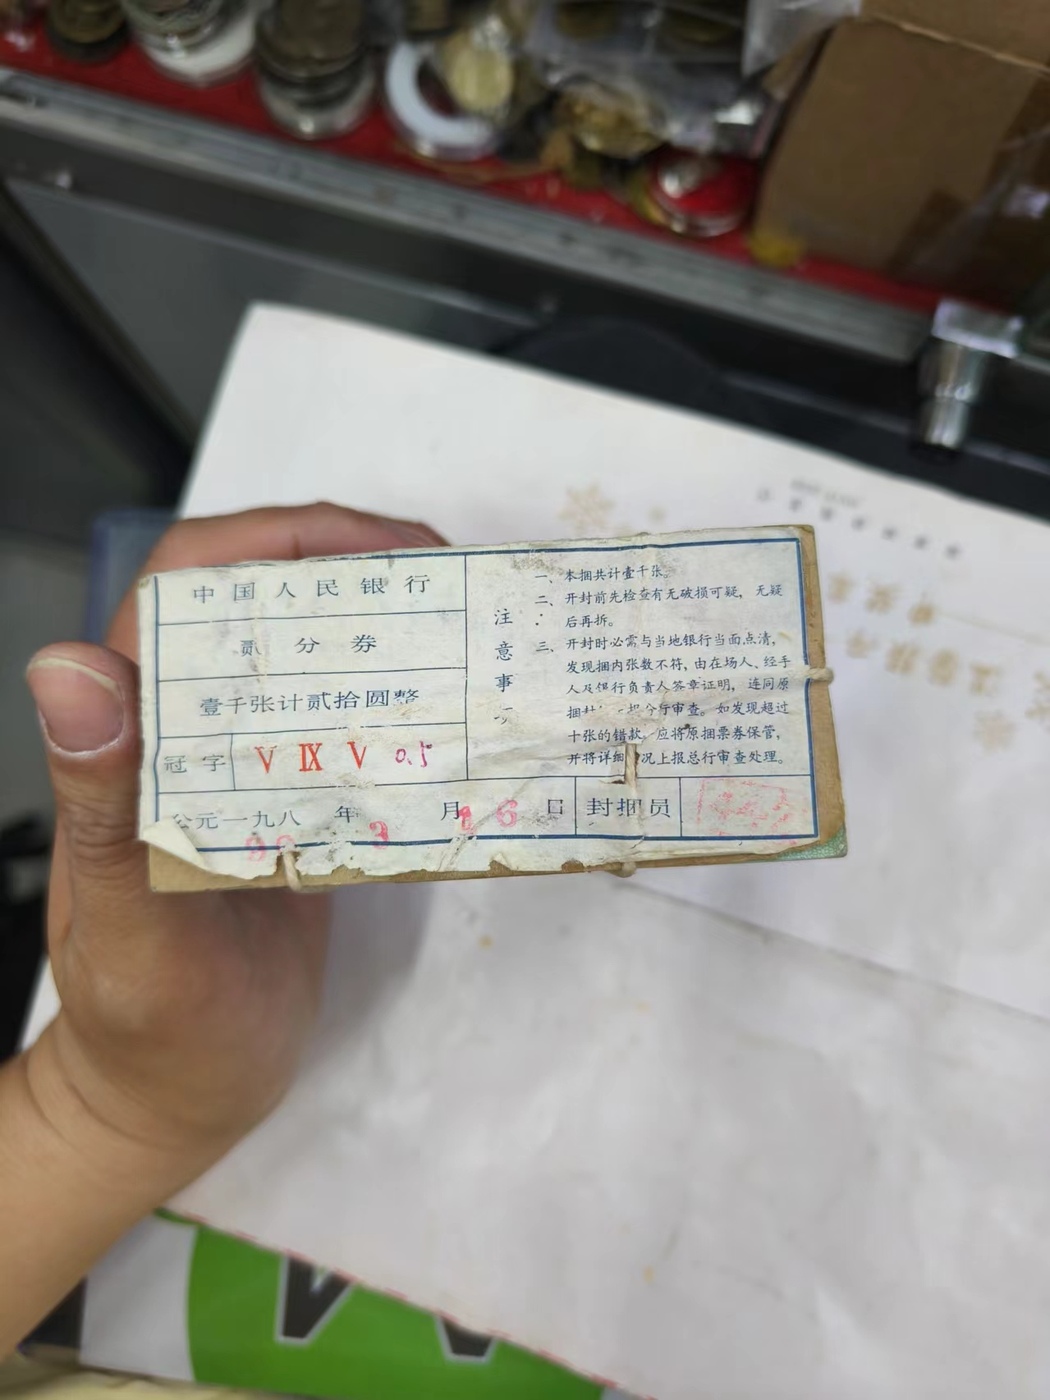 中国人民银行
贰分券
壹千张计贰拾圆整
冠字 V IX V 0.5
公元一九八 年 月 日 封捆员
3 16
注意事
一、本捆共计壹千张。
二、开封前先检查有无破损可疑，无疑
后再拆。
三、开封时必需与当地银行当面点清，
发现捆内张数不符，由在场人、经手
人及银行负责人签章证明，连同原
捆封 分行审查。如发现超过
十张的错款，应将原捆票券保管，
并将详细 况上报总行审查处理。